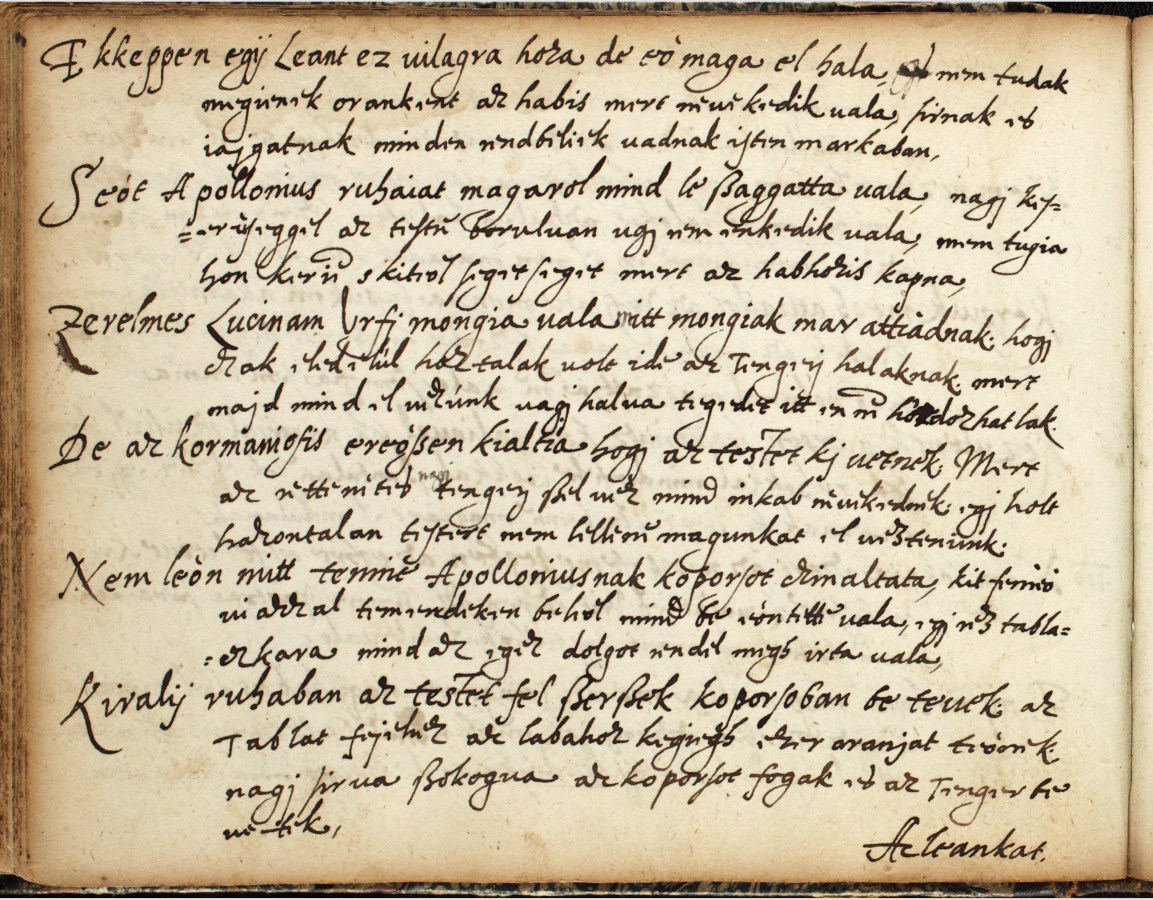 Ekkeppen egÿ Leant ez vilagra hoza de eò maga el hala, nem tudak
megienek orankent az habis mert nèuèkedik vala, sirnak es
iajgatnak minden rendbèliek vadnak isten markaban,
Seót Apollonius ruhaiat magarol mind le ßaggatta vala, nagj kes-
=erüseggel az testre borvluan ugj remenkedik vala, mem tugia
hon kerÿ skitvòl segetseget mert az habhozis kapna,
Zerelmes Lucinam Vrfj mongia vala mitt mongiak mar attiàdnak, hogj
czak eledelül hoztalak volt ide az Tengerÿ halaknak, mert
majd mind el vèzúnk vagj halua tegedet itt enm hordozhatlak.
De az kormaniosis ereòssen kialtia hogj az testet kj vetnek, Mert
az rettenetes nagj tengerÿ ßel vèz mind inkab nèuèkednek, egj holt
hazontalan testert nem lellene magunkat el veßtenünk,
Nem leòn mitt tennie Apolloniusnak koporsot czinaltata, kit fenniò
viazzal temerdeken belwl mind be eòntette vala, egj reß tabla=
=czkara mind az egez dolgot rendel megh irta vala,
Kiralÿ ruhaban az testet fel ßerßek koporsoban be teuek, az
Tablat fejehez az labahoz kegiegh ezer aranjat teònek
nagj sirva ßokogva az koporsot fogak es az Tengerbe
vetek,
Az leankat.